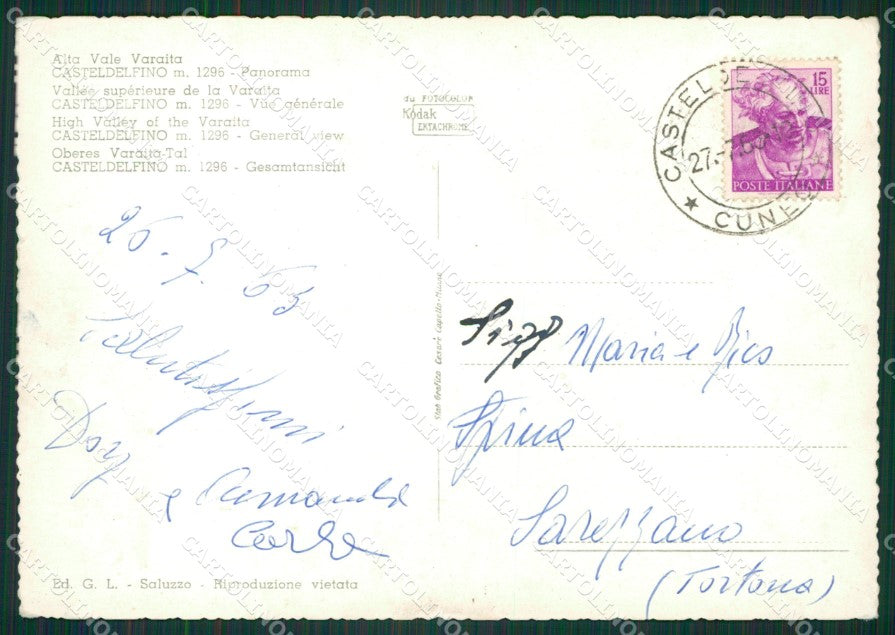 Alta Vale Varaita
CASTELDELFINO m. 1296 - Panorama
Vallée supérieure de la Varaita
CASTELDELFINO m. 1296 - Vue générale
High Valley of the Varaita
CASTELDELFINO m. 1296 - General view
Oberes Varaita-Tal
CASTELDELFINO m. 1296 - Gesamtansicht
da FOTOCOLOR
Kodak
EKTACHROME
15
LIRE
POSTE ITALIANE
CASTELDELFINO
27.-7.63
CUNEO
26.7.63
Salutissimi
e
Stab. Grafico Cesare Capello - Milano
Sigg Maria e
Spina
Sarezzano
(Tortona)
Ed. G. L. - Saluzzo - Riproduzione vietata
CARTOLINOMANIA